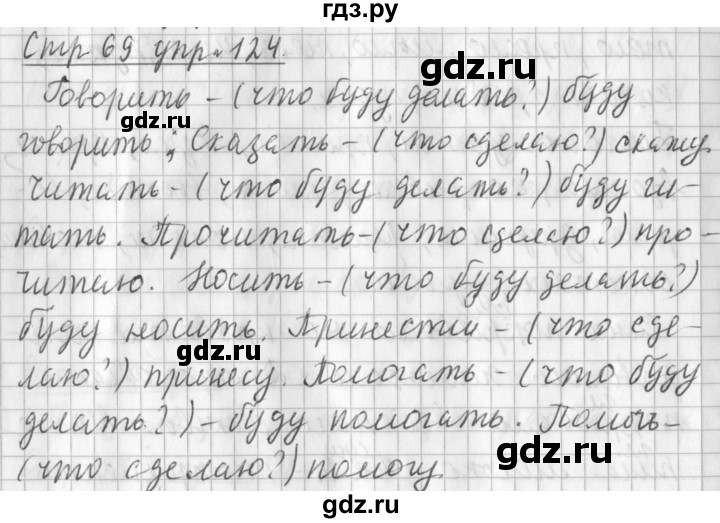 гдз.ру
Стр 69 упр. 124.
Говорить – (что буду делать?) буду
gdz.ru
говорить; Сказать – (что сделаю?) скажу.
Читать – (что буду делать?) буду чи-
тать. Прочитать – (что сделаю?) про-
читаю. Носить – (что буду делать?)
буду носить. Принести – (что сде-
gdz.ru
лаю?) принесу. Помогать – (что буду
делать?) – буду помогать. Помочь –
gdz.ru
(что сделаю?) помогу.
gdz.ru